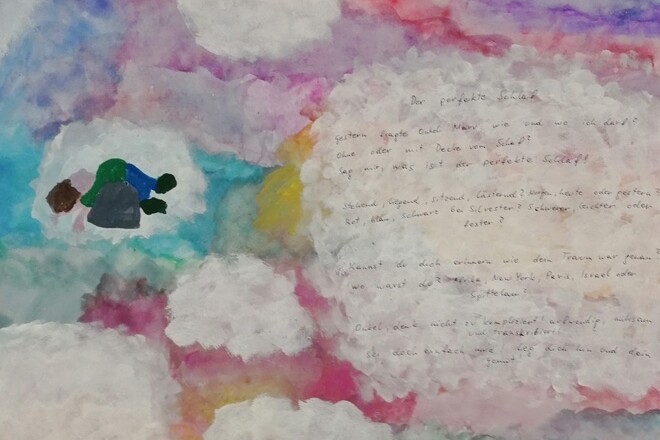 Der perfekte Schlaf
Gestern fragte Onkel Marc wie und wo ich darf?
Ohne oder mit Decke vom Schaf?
Sag mir, was ist der perfekte Schlaf!
Stehend, liegend, sitzend, heute oder gestern?
Rot, blau, schwarz bei Silvester? Schwerer, leichter, oder
fester?
Kannst du dich erinnern wie dein Traum war genau?
wo warst du? Afrika, New York, Paris, Israel oder
Spittelau?
Onkel, denk nicht zu kompliziert aufwendig, mühsam
und
sei doch einfach leg dich hin und dein